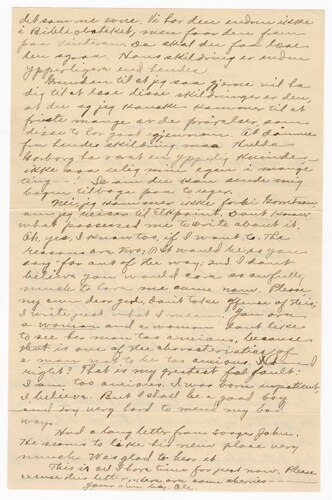 det samme evne. Vi har den endnu ikke
i Biblioteket, men faar den frem
paa vinteren. Da skal du faa læse
den ogsaa. Hans skildring er endnu
ypperligere end hendes.
Grunden til at jeg saa gjerne vil ha
dig til at læse disse skildringer er den,
at du og jeg kanske kommer til at
friste mange av de prøvelser, som
disse to har gaat gjennem. At dømme
fra hendes skildring, maa Hulda
Borborg ha vært en ypperlig kvinde,
ikke saa ulig min egen i mange
ting. — Ja saa du kan sende mig
bogen tilbage paa to uger.
Nei, jeg kommer ikke forbi
naar jeg reiser til Elkpoint. Don't know
what possessed me to write about it.
Oh, yes, I know too, if I want to. The
reasons are two; (1) It would be as you
say far out of the way; and I don't
believe you would care so awfully
much to have me come now. Please
my own dear god, don't take offense at this;
I write just what I mean. You are
a woman and a woman don't like
to see her man too anxious, because
that is one of the characteristics of
a man not to be too anxious.
right? That is my greatest fault:
I am too anxious. I was born impatient
I believe. But I shall be a good boy
and try very hard to mend my bad
ways.
Had a long letter from John.
He seems to like his new place very
much. Was glad to hear it.
This is all I have time for just now. Please
excuse this letter,
Your own boy, Ole.